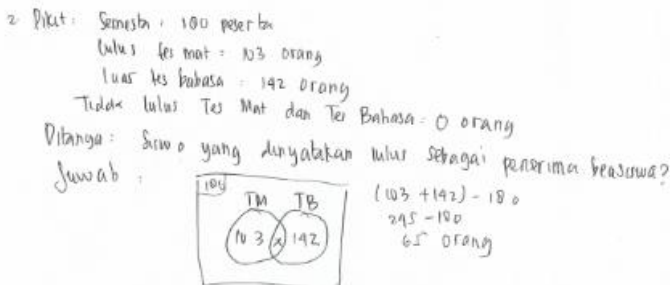 2 Dikt : Semesta : 180 peserta
lulus tes mat = 103 orang
luas tes bahasa : 142 orang
Tidak lulus Tes Mat dan Tes Bahasa : 0 orang
Ditanya : Siswa yang dinyatakan lulus sebagai penerima beasiswa?
Jawab :
180
TM TB
103 x 142
(103 + 142) - 180
245 - 180
65 orang